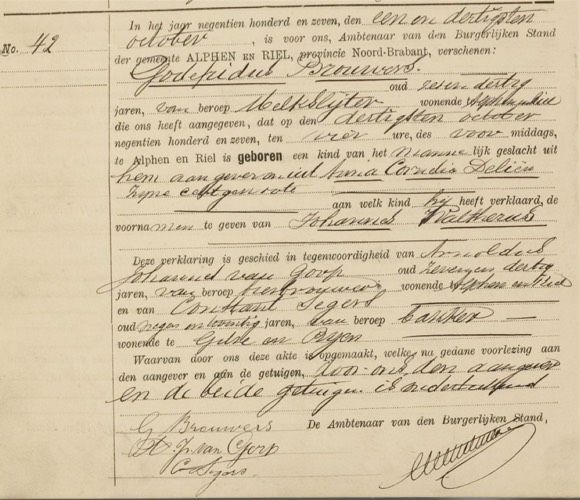 No. 42
In het jaar negentien honderd en zeven, den een en dertigsten
october, is voor ons, Ambtenaar van den Burgerlijken Stand
der gemeente ALPHEN EN RIEL, provincie Noord-Brabant, verschenen:
Godefridus Brouwers.
oud zeven dertig
jaren, van beroep Melkslijter wonende Alphen en Riel
die ons heeft aangegeven, dat op den dertigsten october
negentien honderd en zeven, ten vier ure, des voor middags,
te Alphen en Riel is geboren een kind van het mannelijk geslacht uit
hem aangever en uit Anna Cornelia Deliën
zijne echtgenoote
aan welk kind hij heeft verklaard, de
voornamen te geven van Johannes Waltherus
Deze verklaring is geschied in tegenwoordigheid van Arnoldus
Johannes van Goorp oud zeven en dertig
jaren, van beroep bierbrouwer wonende te Alphen en Riel
en van Constant Segers
oud negen en twintig jaren, van beroep
wonende te Gilze en Rijen
Waarvan door ons deze akte is opgemaakt, welke, na gedane voorlezing aan
den aangever en aan de getuigen, door ons, den aangever
en de beide getuigen is onderteekend
G Brouwers
A. J. van Gorp
C Segers
De Ambtenaar van den Burgerlijken Stand,